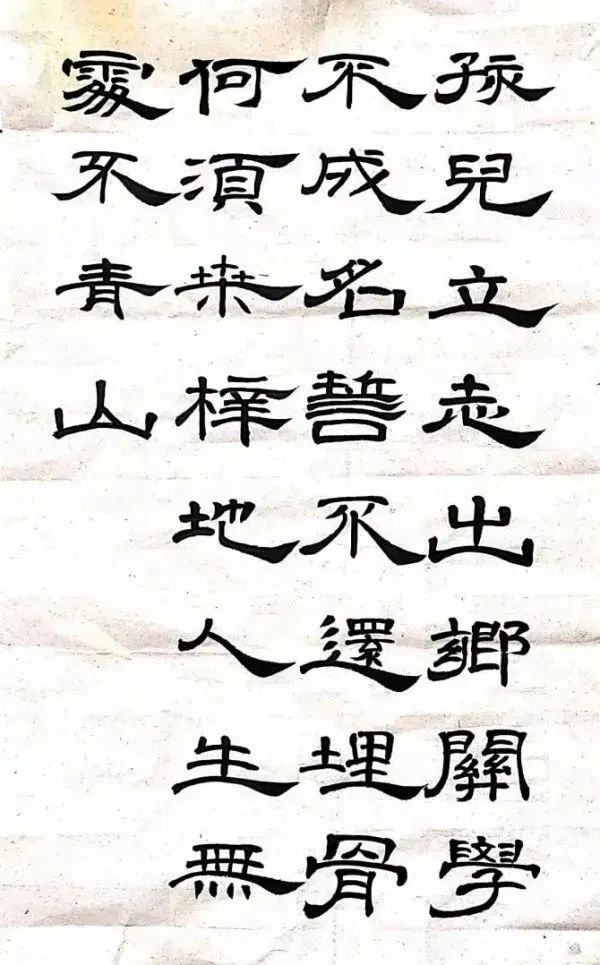 孩兒立志出鄉關學
不成名誓不還埋骨
何須桒梓地人生無
處不青山